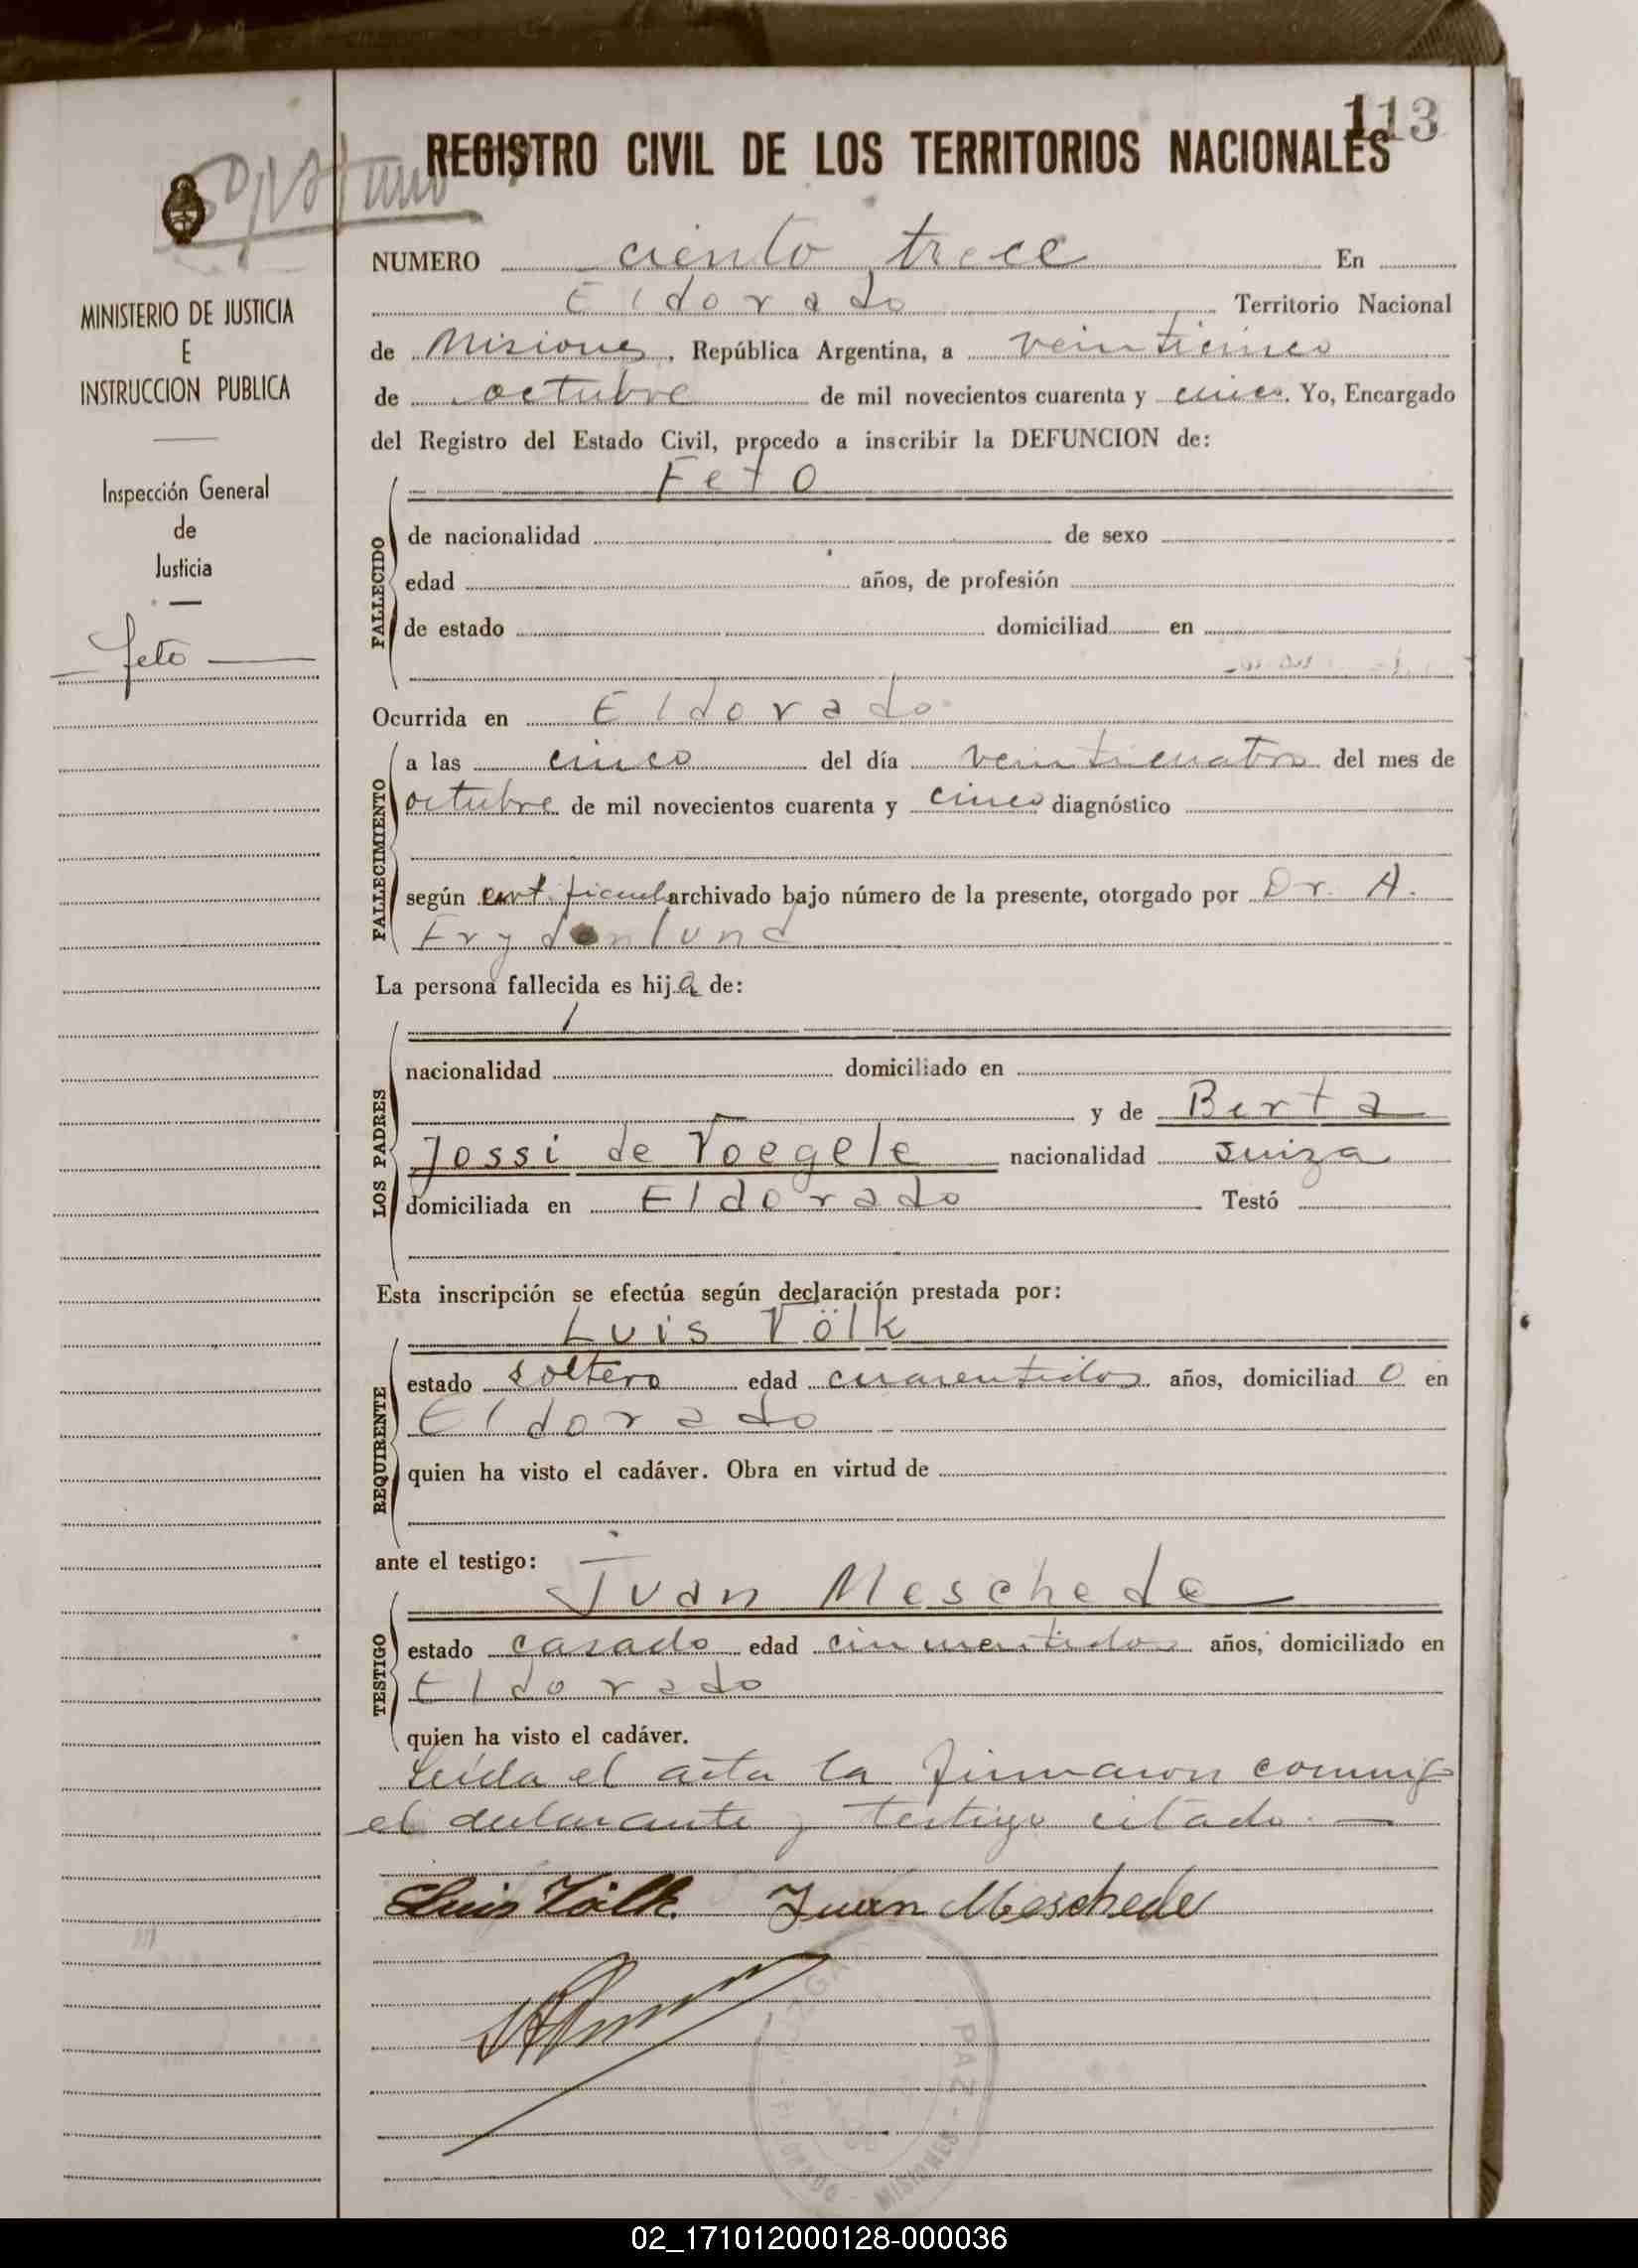 113
REGISTRO CIVIL DE LOS TERRITORIOS NACIONALES
MINISTERIO DE JUSTICIA
E
INSTRUCCION PUBLICA
Inspección General
de
Justicia
feto
NUMERO ciento trece En
Eldorado Territorio Nacional
de Misiones, República Argentina, a veinticinco
de octubre de mil novecientos cuarenta y cinco. Yo, Encargado
del Registro del Estado Civil, procedo a inscribir la DEFUNCION de:
Feto
FALLECIDO
de nacionalidad de sexo
edad años, de profesión
de estado domiciliad en
Ocurrida en Eldorado
FALLECIMIENTO
a las cinco del día veinticuatro del mes de
octubre de mil novecientos cuarenta y cinco diagnóstico
según archivado bajo número de la presente, otorgado por Dr. A.
Frydenlund
La persona fallecida es hija de:
LOS PADRES
nacionalidad domiciliado en
y de Berta
Jossi de Voegele nacionalidad suiza
domiciliada en Eldorado Testó
Esta inscripción se efectúa según declaración prestada por:
Luis Völk
REQUIRENTE
estado soltero edad cuarentidos años, domiciliado en
Eldorado
quien ha visto el cadáver. Obra en virtud de
ante el testigo:
Juan Meschede
TESTIGO
estado casado edad cincuentidos años, domiciliado en
Eldorado
quien ha visto el cadáver.
Leída el acta la firmaron conmigo
el declarante y testigo citado. —
Luis Völk Juan Meschede
PAZ - MISIONES
02_171012000128-000036